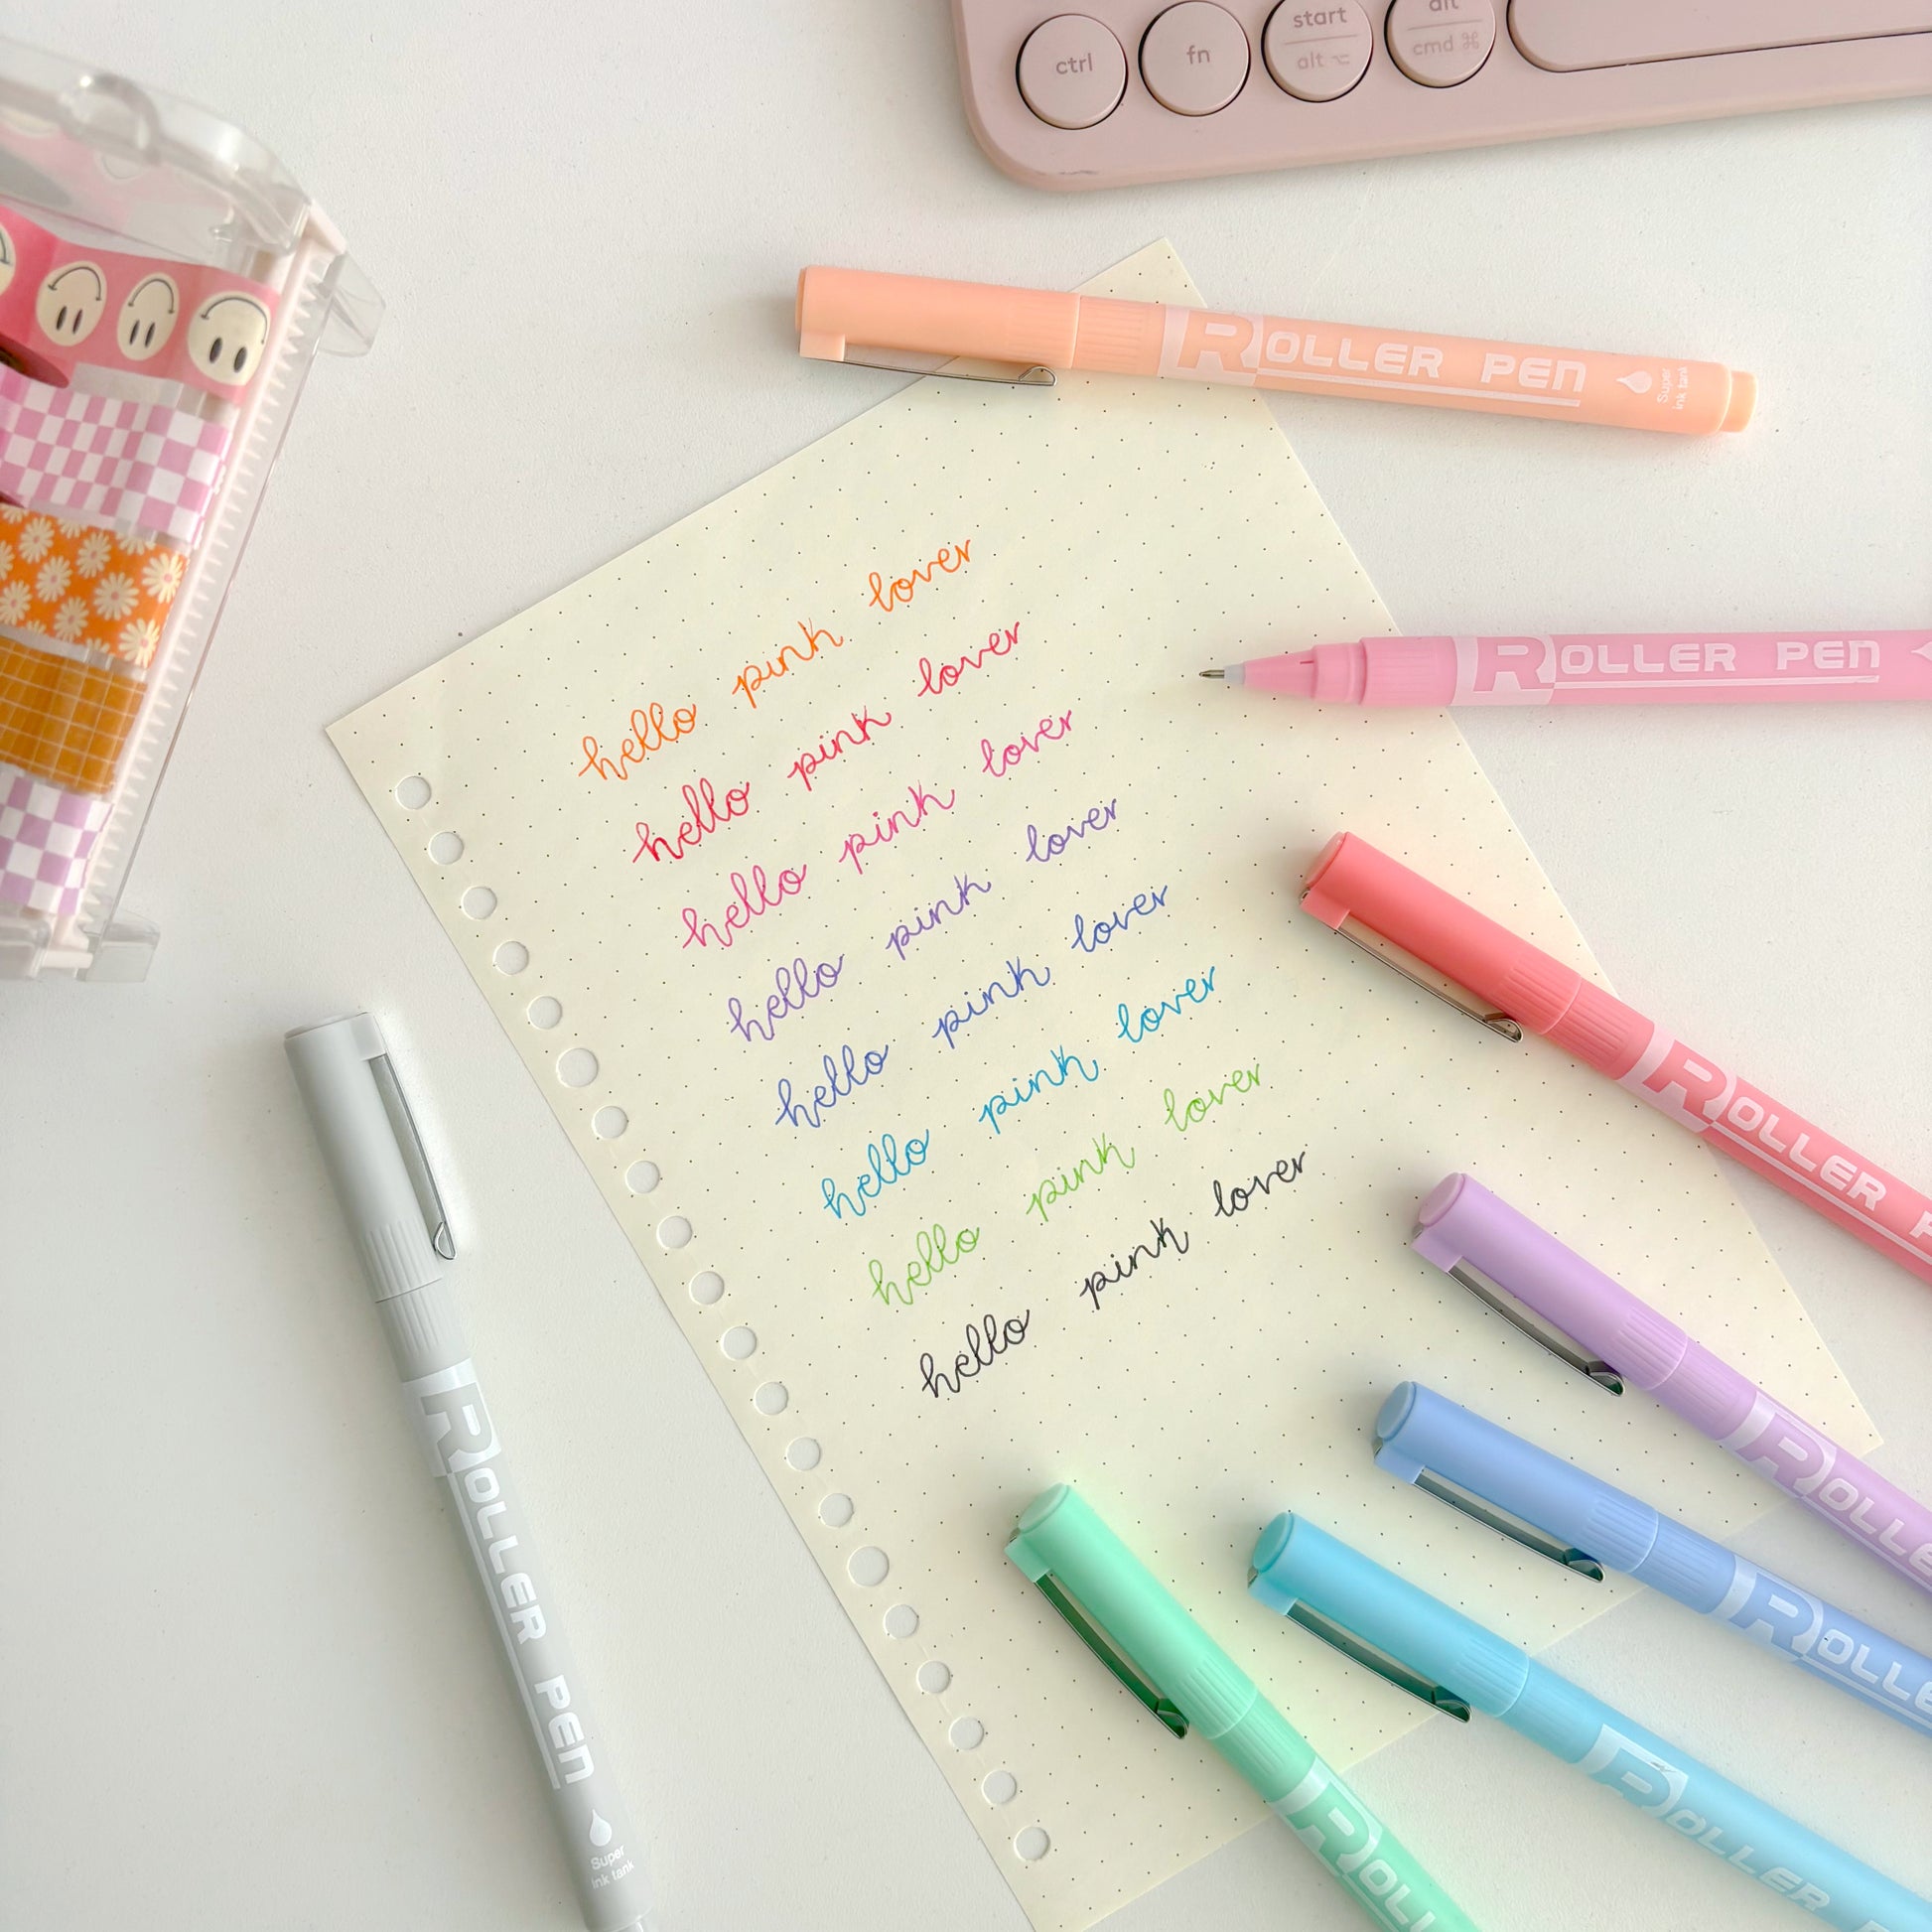 ctrl
fn
start
alt ⌥
alt
cmd ⌘
ROLLER PEN
Super
ink tank
hello pink lover
hello pink lover
hello pink lover
hello pink lover
hello pink lover
hello pink lover
hello pink lover
hello pink lover
ROLLER PEN
ROLLER
ROLLER
ROLLE
ROLLER
ROLL
ROLLER PEN
Super
ink tank